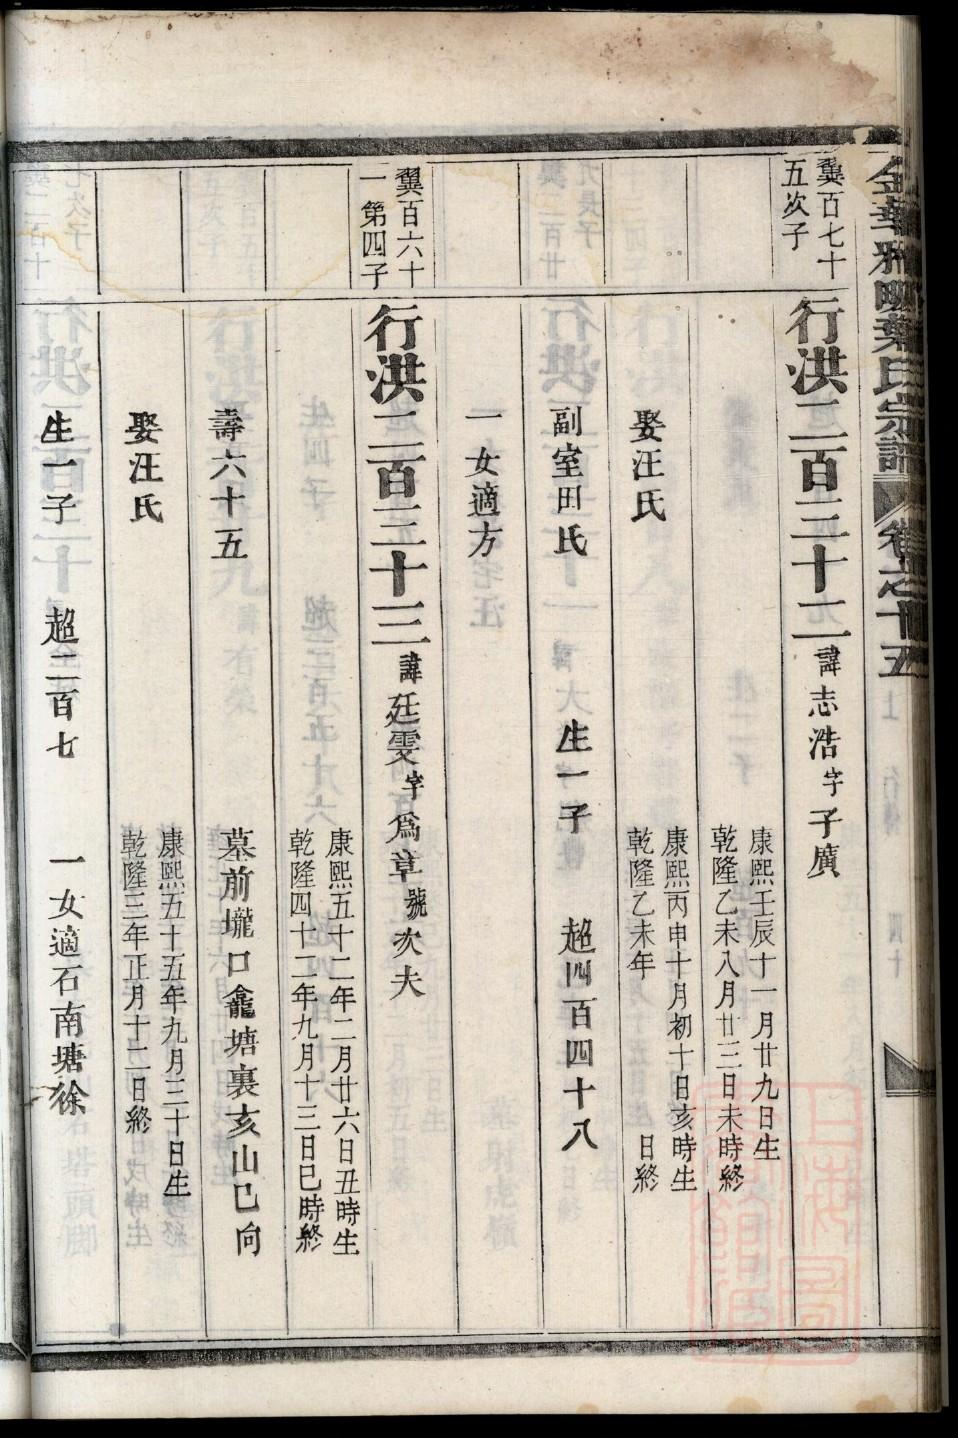 金華雅畈葉氏宗譜 卷之十五
翼百七十
五次子
行洪二百三十二 諱志浩字子廣
康熙壬辰十一月廿九日生
乾隆乙未八月廿三日未時終
娶汪氏
康熙丙申十月初十日亥時生
乾隆乙未年 日終
副室田氏 生一子 超四百四十八
一女適方
翼百六十
一第四子
行洪二百三十三 諱廷雯字為章號次夫
康熙五十二年二月廿六日丑時生
乾隆四十二年九月十三日巳時終
壽六十五 墓前壠口龕塘裏亥山巳向
娶汪氏
康熙五十五年九月三十日生
乾隆三年正月十二日終
生一子 超二百七 一女適石南塘徐